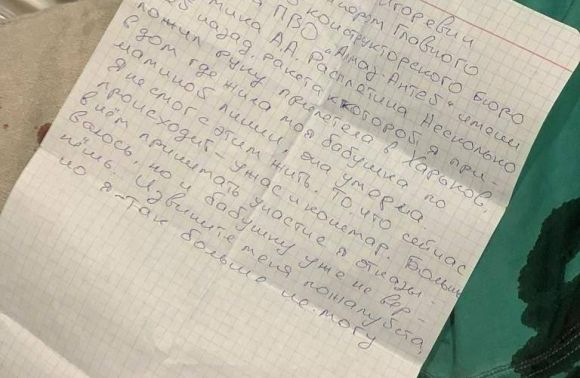 Главного
конструкторского бюро
ПВО "Алмаз-Антей" имени
А.А. Расплетина. Несколько
назад, ракета к которой я при-
ложил руку прилетела в Харьков,
в дом где жила моя бабушка по
маминой линии, она умерла.
Я не смог с этим жить. То, что сейчас
происходит - ужас и кошмар. Больше
в нём принимать участие я отказы-
ваюсь, но и бабушку уже не вер-
нёшь. Извините меня пожалуйста,
но я так больше не могу